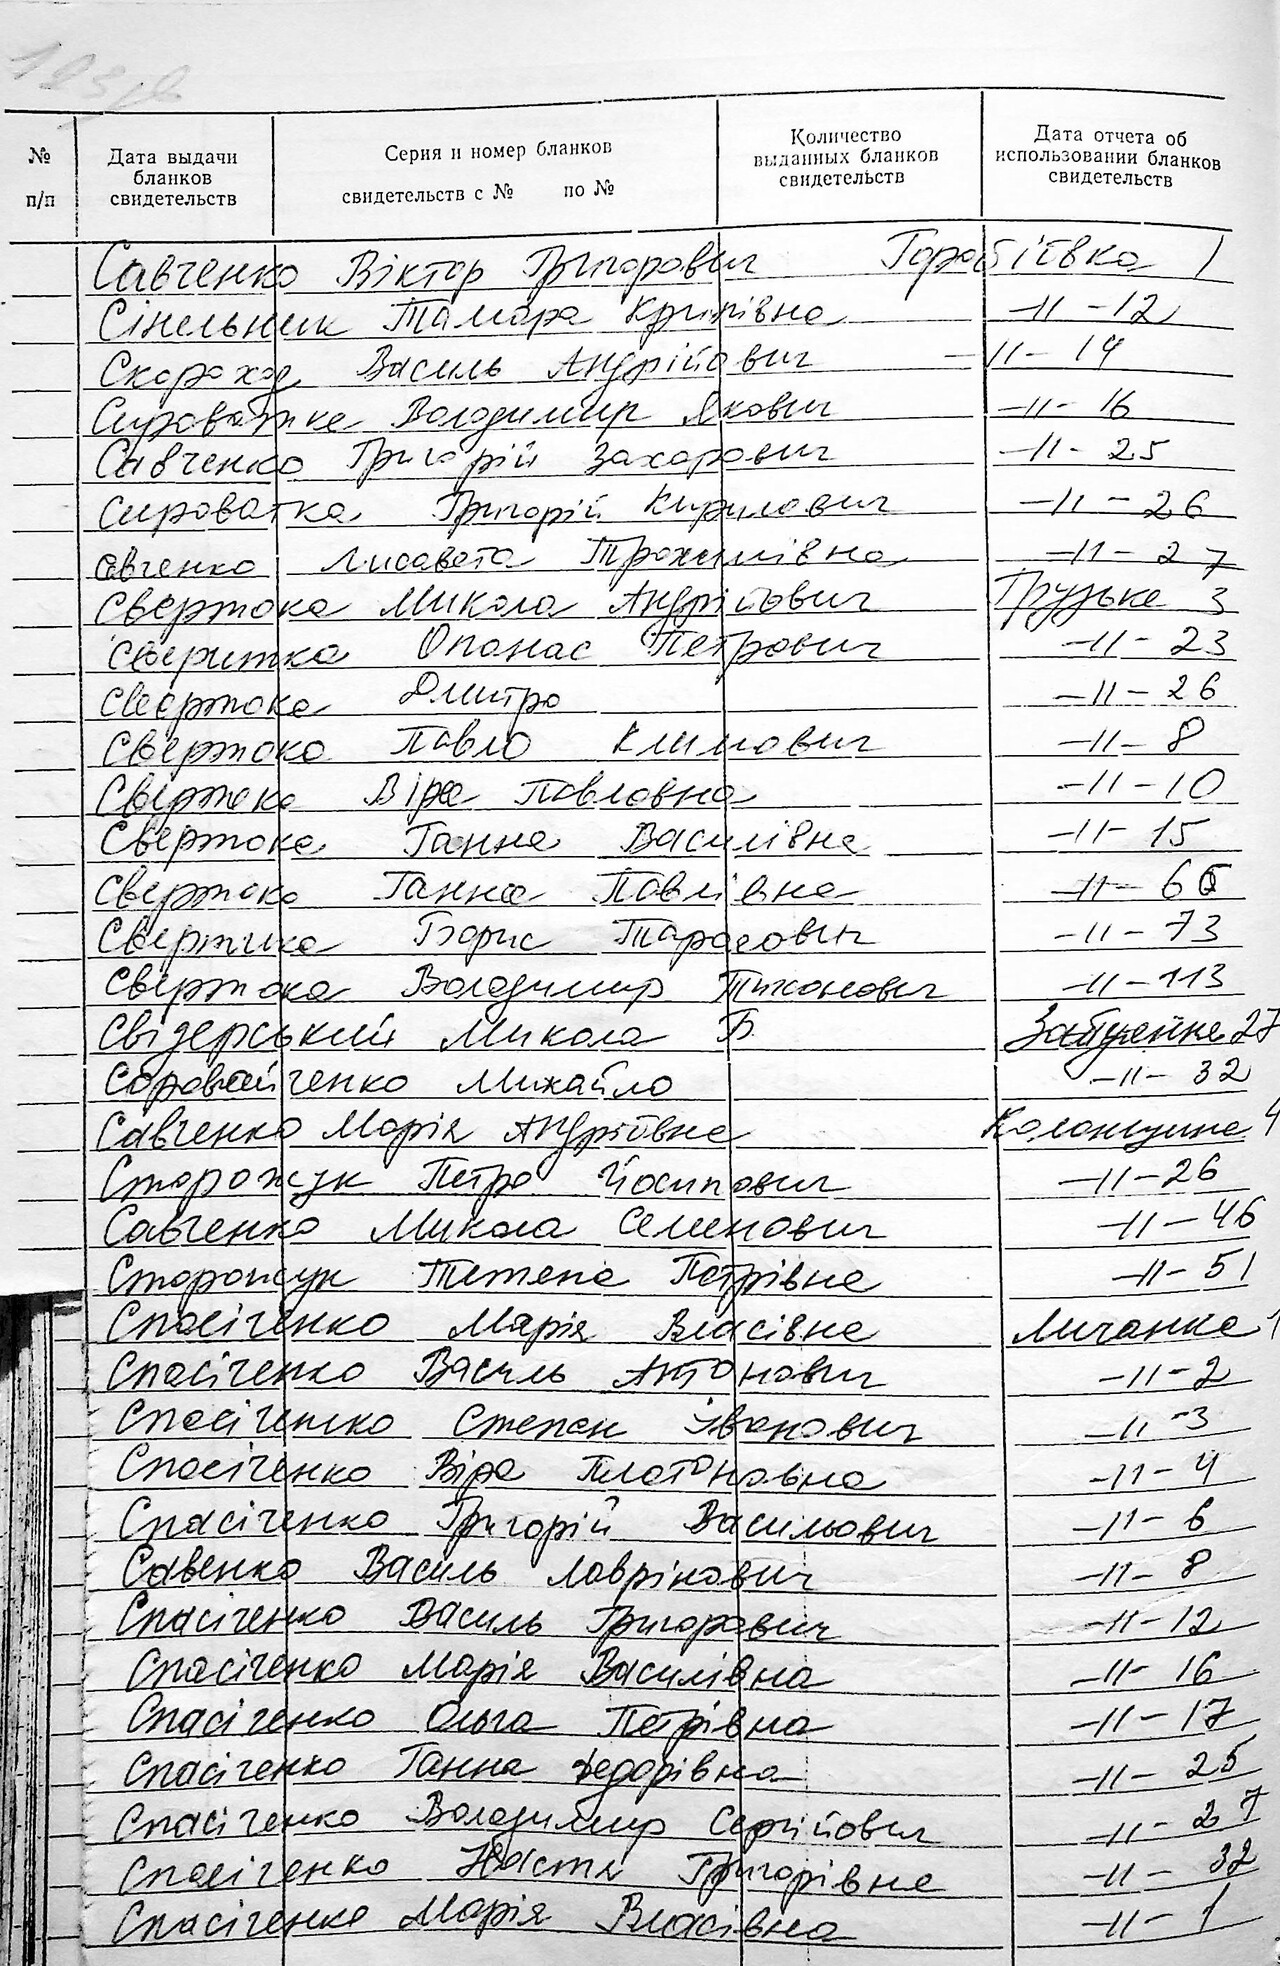 № п/п
Дата выдачи бланков свидетельств
Серия и номер бланков свидетельств с № по №
Количество выданных бланков свидетельств
Дата отчета об использовании бланков свидетельств
Савченко Віктор Григорович Горобіївка 1
Сінельник Тамара Крипівна -11- 12
Скороход Василь Андрійович -11- 14
Сироватка Володимир Якович -11- 16
Савченко Григорій Захарович -11- 25
Сироватка Григорій Кирилович -11- 26
авченко Лисавета Трохимівна -11- 27
Свертока Микола Андрійович Грузьке 3
Сверитка Опанас Петрович -11- 23
Свертока Дмитро -11- 26
Свертока Павло Климович -11- 8
Свертока Віра Павловна -11- 10
Свертока Ганна Василівна -11- 15
Свертока Ганна Павлівна -11-
Свертика Борис Тарасович -11- 73
Свертока Володимир Тихонович -11- 113
Свідерський Микола Б. 27
Михайло -11- 32
Савченко Марія Андріївна Колонщина 4
Сторожук Петро Йосипович -11- 26
Савченко Микола Семенович -11- 46
Сторожук Тетяна Петрівна -11- 51
Спасіченко Марія Власівна Личанка 1
Спасіченко Василь Антонович -11- 2
Спасіченко Степан Іванович -11- 3
Спасіченко Віра Платоновна -11- 4
Спасіченко Григорій Васильович -11- 6
Савенко Василь Лаврінович -11- 8
Спасіченко Василь Григорович -11- 12
Спасіченко Марія Василівна -11- 16
Спасіченко Ольга Петрівна -11- 17
Спасіченко Ганна Федорівна -11- 25
Спасіченко Володимир Сергійович -11- 27
Спасіченко Настя Григорівна -11- 32
Спасіченко Марія Власівна -11- 1